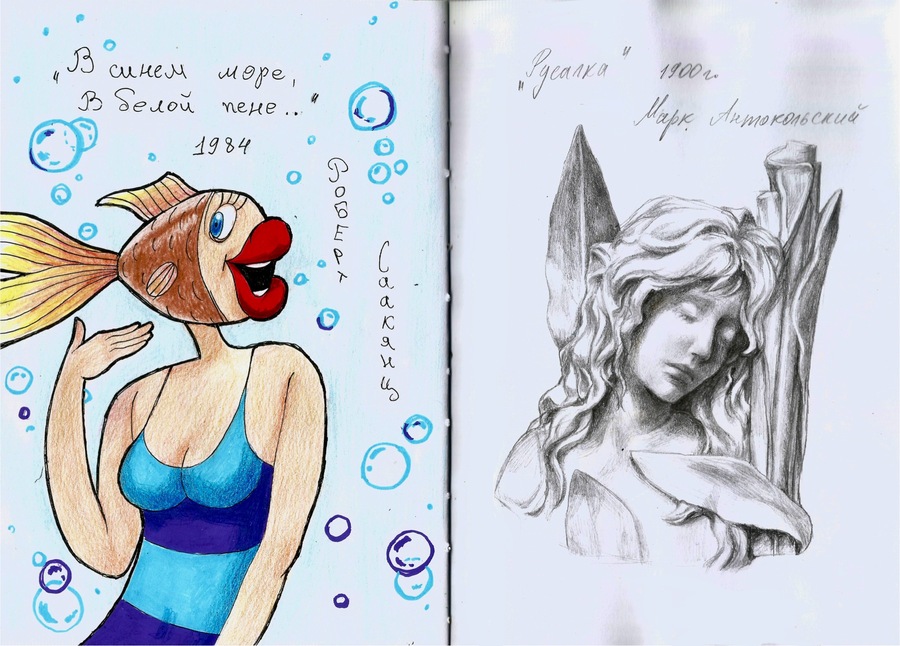 „В синем море,
В белой пене..."
1984
Роберт
Саакянц
„Русалка" 1900г.
Марк Антокольский